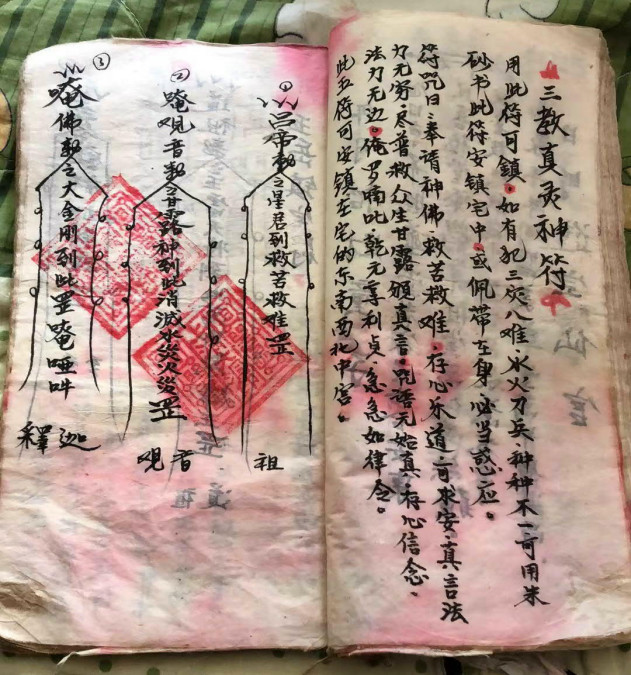 三教真灵神符
用此符可鎮。如有犯三灾八难，水火刀兵种种不一可用朱
砂书此符安镇宅中。或佩带在身，必当惑应。
符咒曰：奉请神佛。救苦救难。存心尔道。可求安。真言法
力无穷。尽普救众生甘露。颁真言。咒语无始真。存心信念。
法力无边。俺罗喃叱。乾元亨利贞。急急如律令。
此五符可安镇在宅的东南西北中宫。
①
吕帝勅之星君到救苦救难罡
祖
②
唵观音勅之甘露神到此消滅水灾火灾罡
观音
③
唵佛勅之大金刚到此罡唵哑吽
釋迦